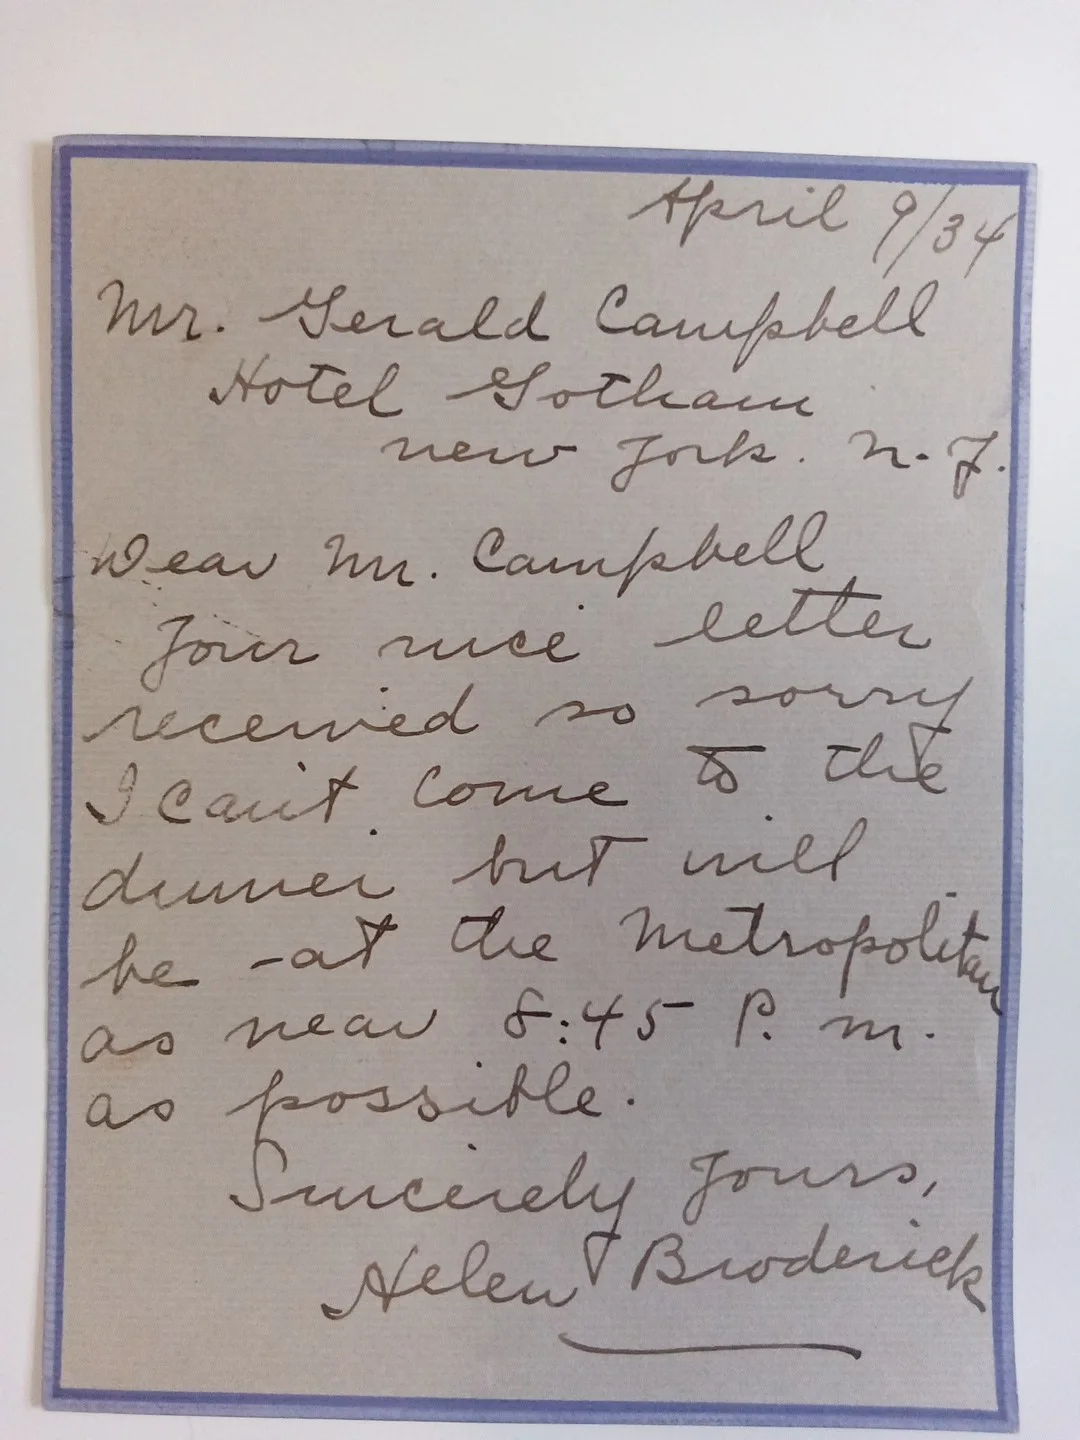 April 9/34
Mr. Gerald Campbell
Hotel Gotham
New York. N. Y.
Dear Mr. Campbell
Your nice letter
received so sorry
I can't come to the
dinner but will
be at the Metropolitan
as near 8:45 P. M.
as possible.
Sincerely Yours,
Helen Broderick